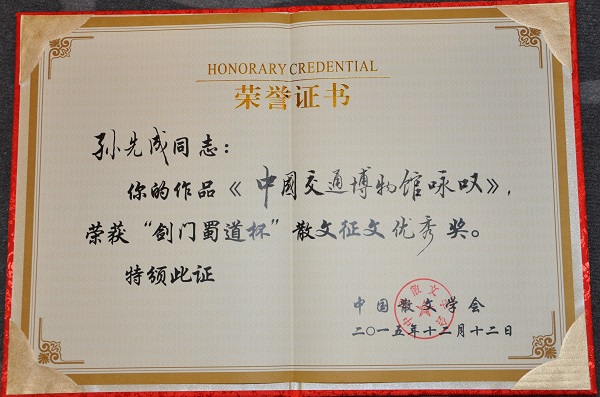 HONORARY CREDENTIAL
荣誉证书
孙先成同志：
你的作品《中国交通博物馆咏叹》，
荣获“剑门蜀道杯”散文征文优秀奖。
特颁此证
中国散文学会
中国散文学会
二〇一五年十二月十二日